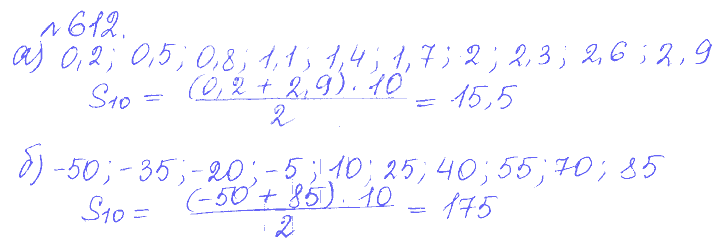 №612.
а) 0,2; 0,5; 0,8; 1,1; 1,4; 1,7; 2; 2,3; 2,6; 2,9
S₁₀ = (0,2 + 2,9) · 10 / 2 = 15,5
б) -50; -35; -20; -5; 10; 25; 40; 55; 70; 85
S₁₀ = (-50 + 85) · 10 / 2 = 175